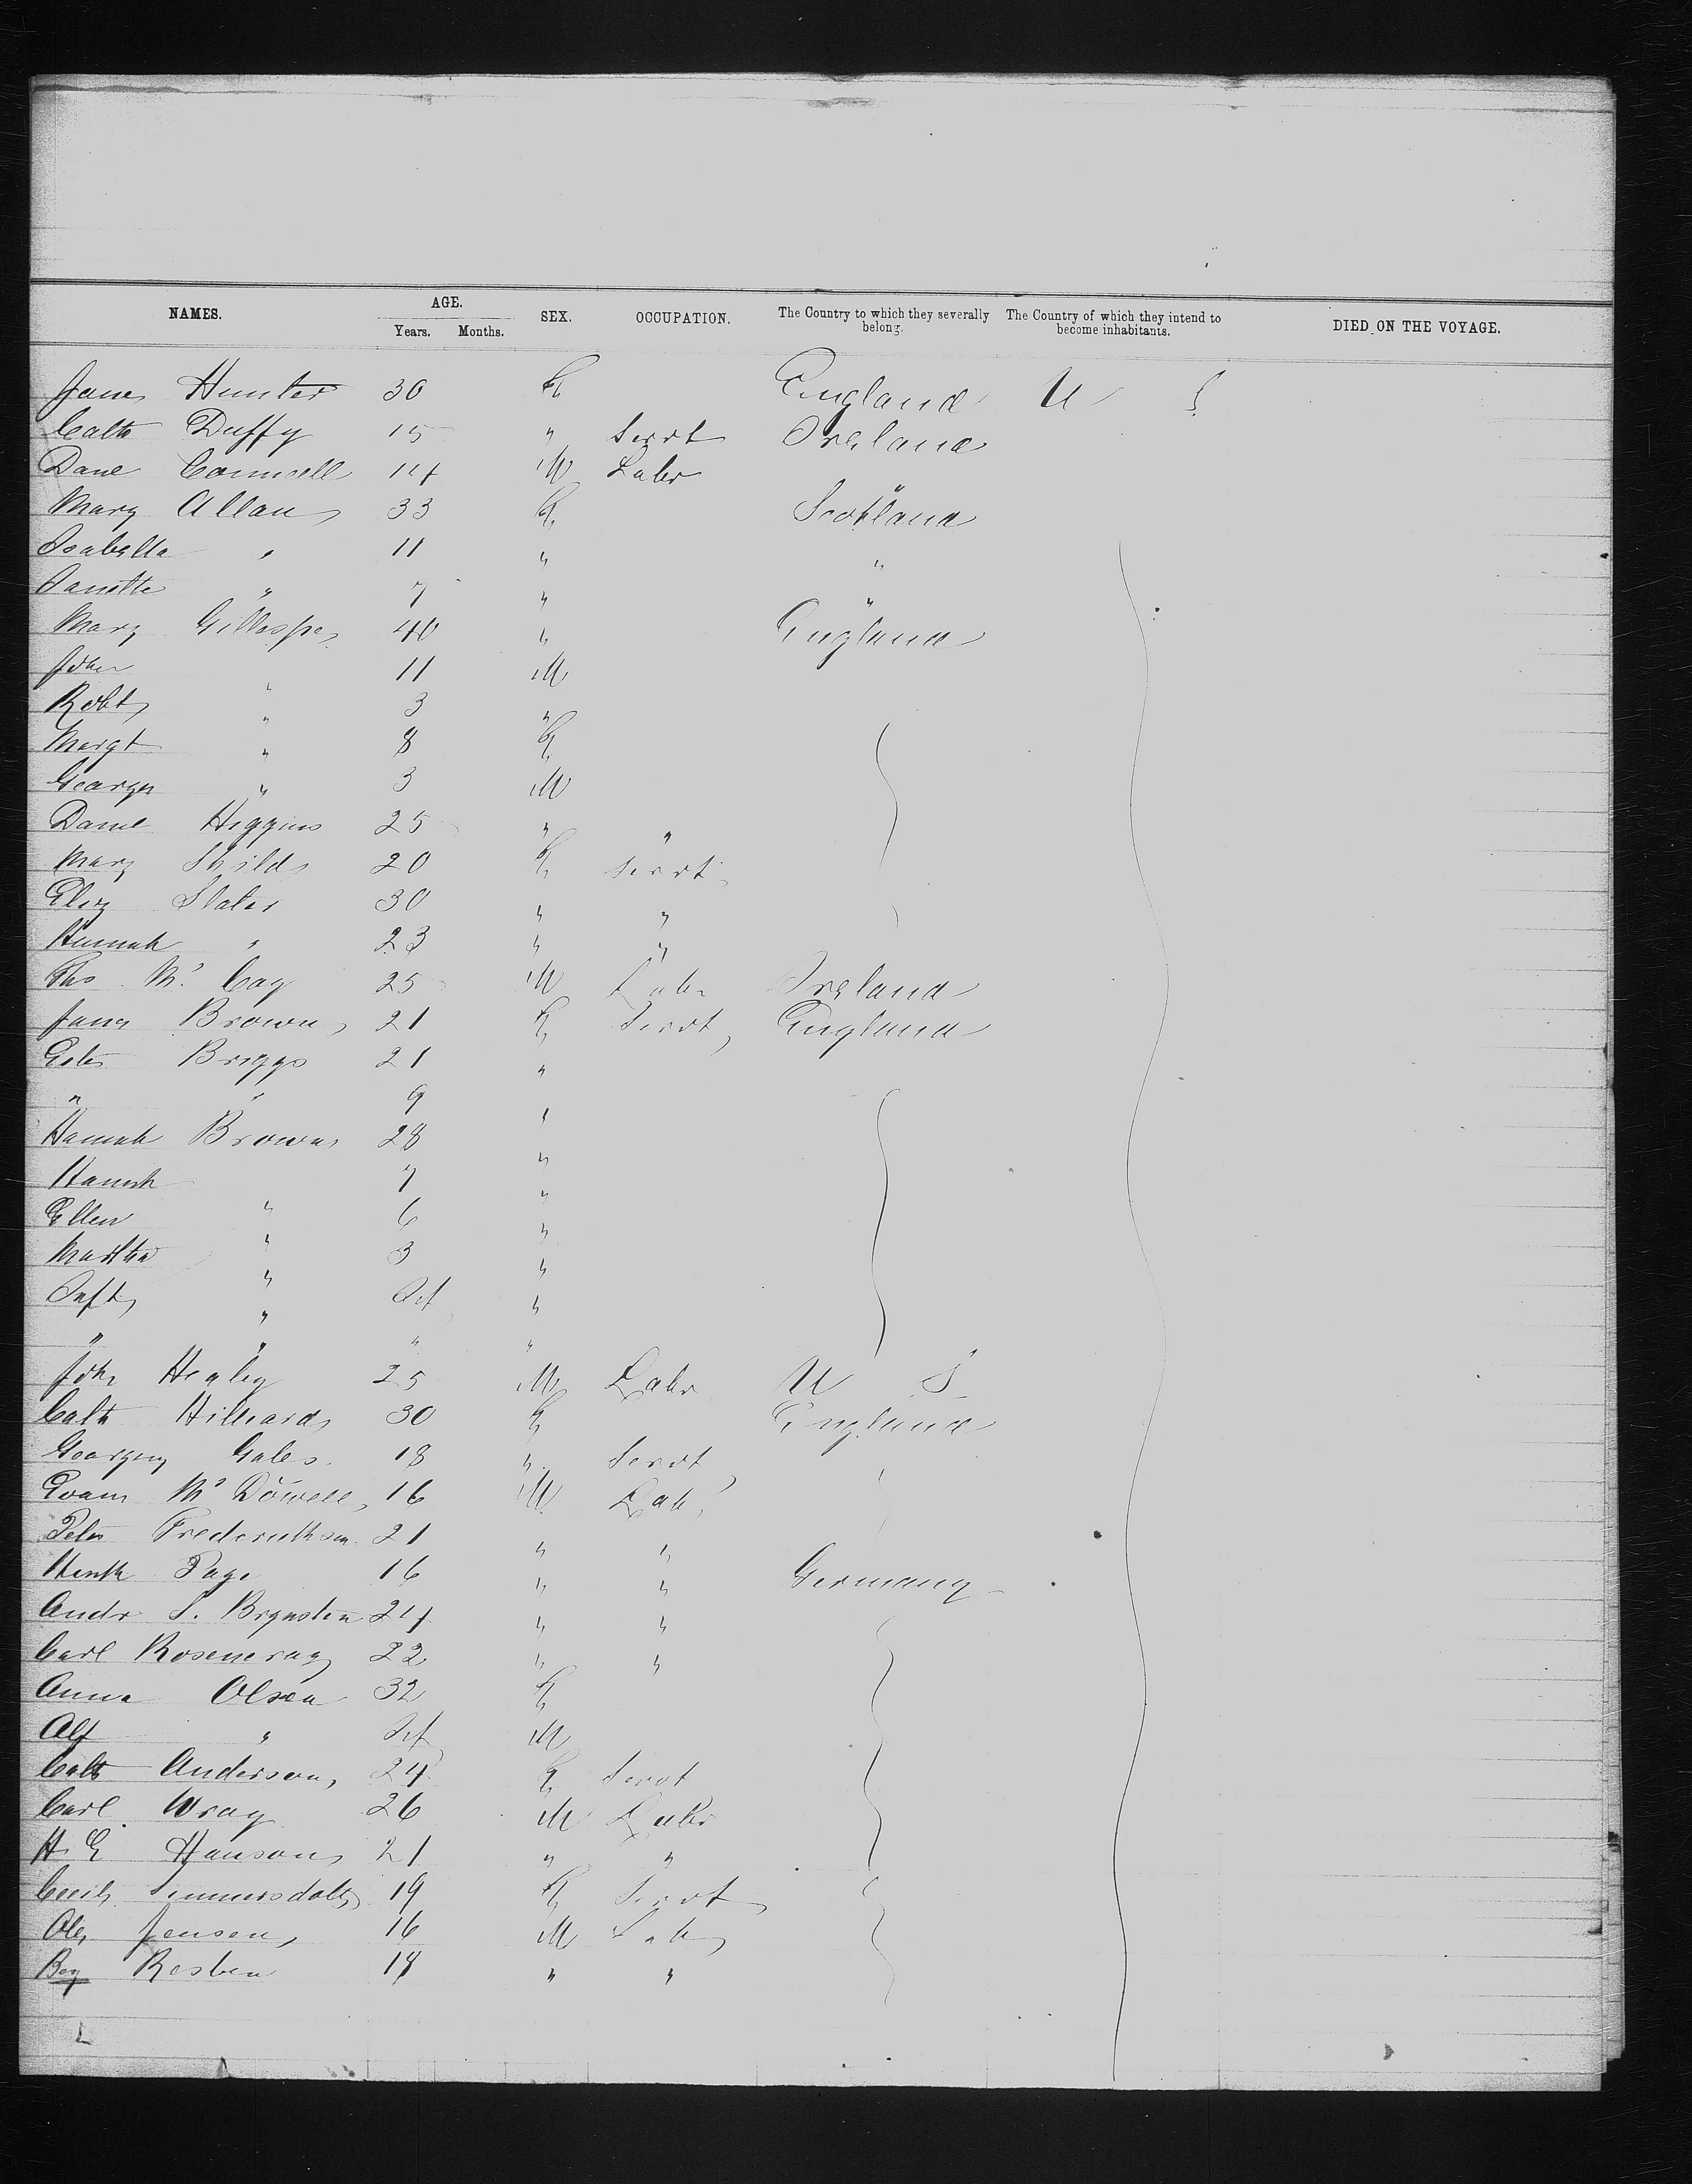 NAMES. AGE. SEX. OCCUPATION. The Country to which they severally belong. The Country of which they intend to become inhabitants. DIED ON THE VOYAGE.
Years. Months.
Jane Hunter 30 F England U S
Cath Duffy 15 " Servt Ireland
Danl Connell 14 M Labr "
Mary Allan 33 F Scotland
Isabella " 11 " "
Janette " 7 " "
Mary Gillespe 40 " England
John " 11 M
Robt " 3 "
Margt " 8 F
George " 3 M
Danl Higgins 25 " "
Mary Shilds 20 F Servt
Eliz Slater 30 " "
Hannah " 23 " "
Tho Mc Coy 25 M Labr Ireland
Jane Brown 21 F Servt England
Briggs 21 "
" " 9 "
Hannah Brown 28 "
Hannah " 7 "
Ellen " 6 "
Martha " 3 "
Inft " Inf "
" " " "
John Healey 25 M Labr U S
Cath Hilliard 30 F England
Georgeny Gales 18 " Servt
Evans Mc Dowell 16 M Labr
Peter Frederickson 21 " "
Page 16 " " Germany
Andr S. 24 " "
Carl 22 " "
Anna Olsen 32 F
Alf " Inf M
Cath Anderson 24 F Servt
Carl Wray 26 M Labr
H. E Hanson 21 " "
19 F Servt
Ole Jensen 16 M Labr
18 " "